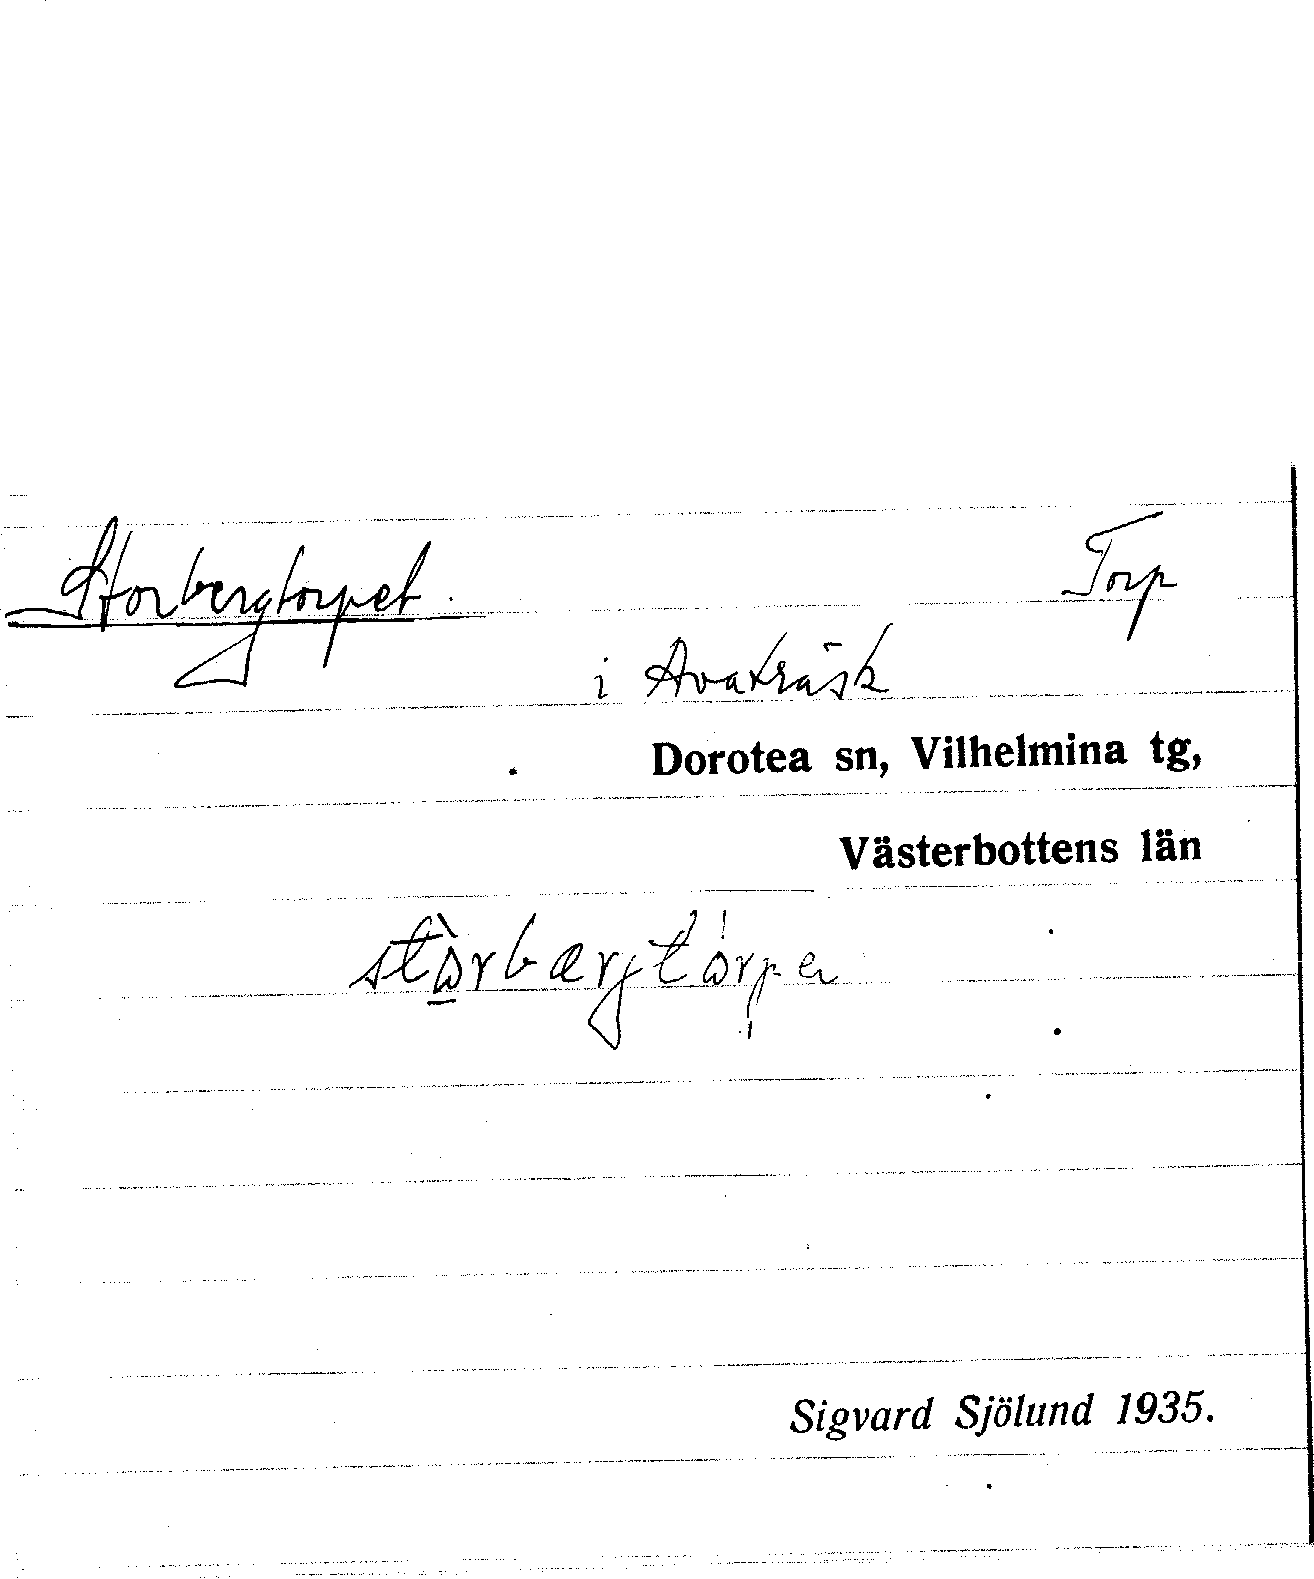 Storbergtorpet. Torp
i Avaträsk
Dorotea sn, Vilhelmina tg,
Västerbottens län
stòrbærgtórpe
Sigvard Sjölund 1935.